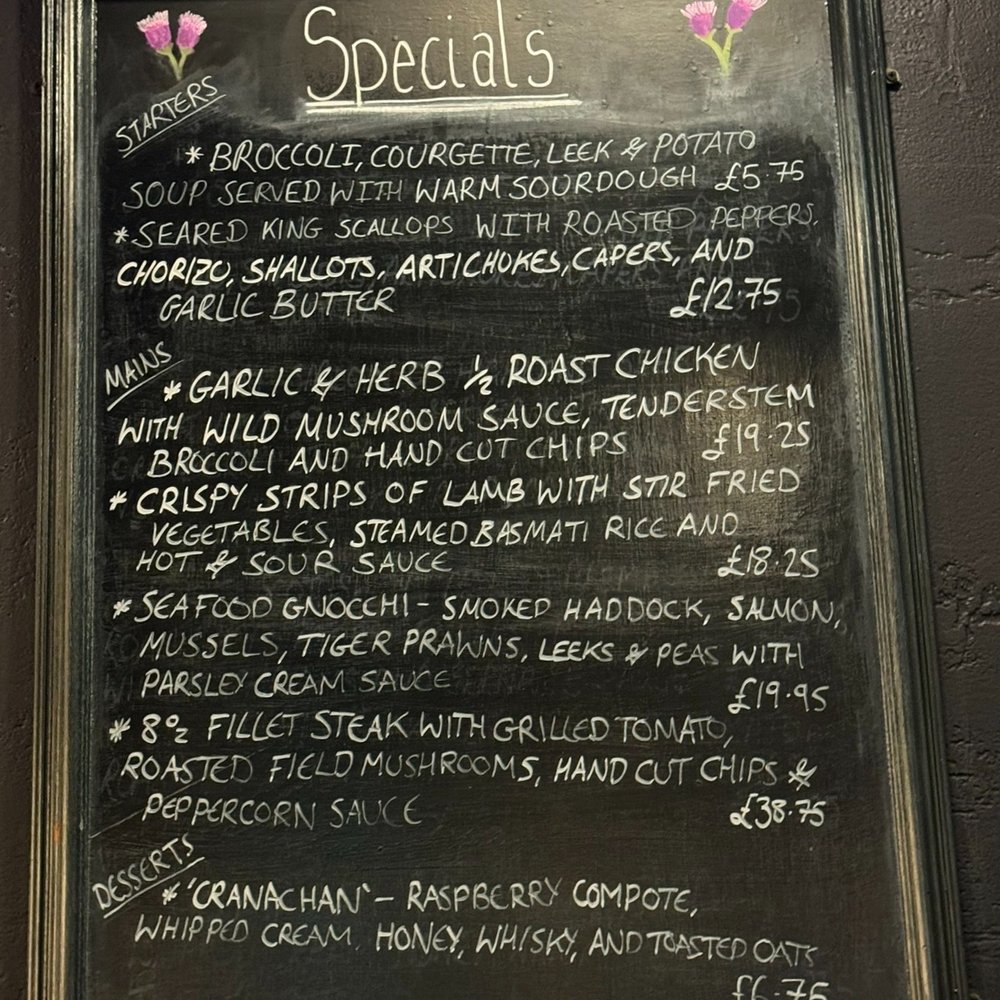 Specials
STARTERS
* BROCCOLI, COURGETTE, LEEK & POTATO
SOUP SERVED WITH WARM SOURDOUGH £5.75
* SEARED KING SCALLOPS WITH ROASTED PEPPERS,
CHORIZO, SHALLOTS, ARTICHOKES, CAPERS, AND
GARLIC BUTTER £12.75
MAINS
* GARLIC & HERB ½ ROAST CHICKEN
WITH WILD MUSHROOM SAUCE, TENDERSTEM
BROCCOLI AND HAND CUT CHIPS £19.25
* CRISPY STRIPS OF LAMB WITH STIR FRIED
VEGETABLES, STEAMED BASMATI RICE AND
HOT & SOUR SAUCE £18.25
* SEAFOOD GNOCCHI - SMOKED HADDOCK, SALMON,
MUSSELS, TIGER PRAWNS, LEEKS & PEAS WITH
PARSLEY CREAM SAUCE £19.95
* 8oz FILLET STEAK WITH GRILLED TOMATO,
ROASTED FIELD MUSHROOMS, HAND CUT CHIPS &
PEPPERCORN SAUCE £38.75
DESSERTS
* 'CRANACHAN' - RASPBERRY COMPOTE,
WHIPPED CREAM, HONEY, WHISKY, AND TOASTED OATS
£6.75